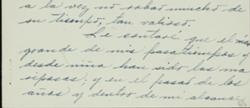 a la vez no robar mucho de
su tiempo, tan valioso.
Le contaré que el más
grande de mis pasatiempos y
desde niña han sido las ma-
riposas, y en el pasar de los
años y dentro de mi alcance